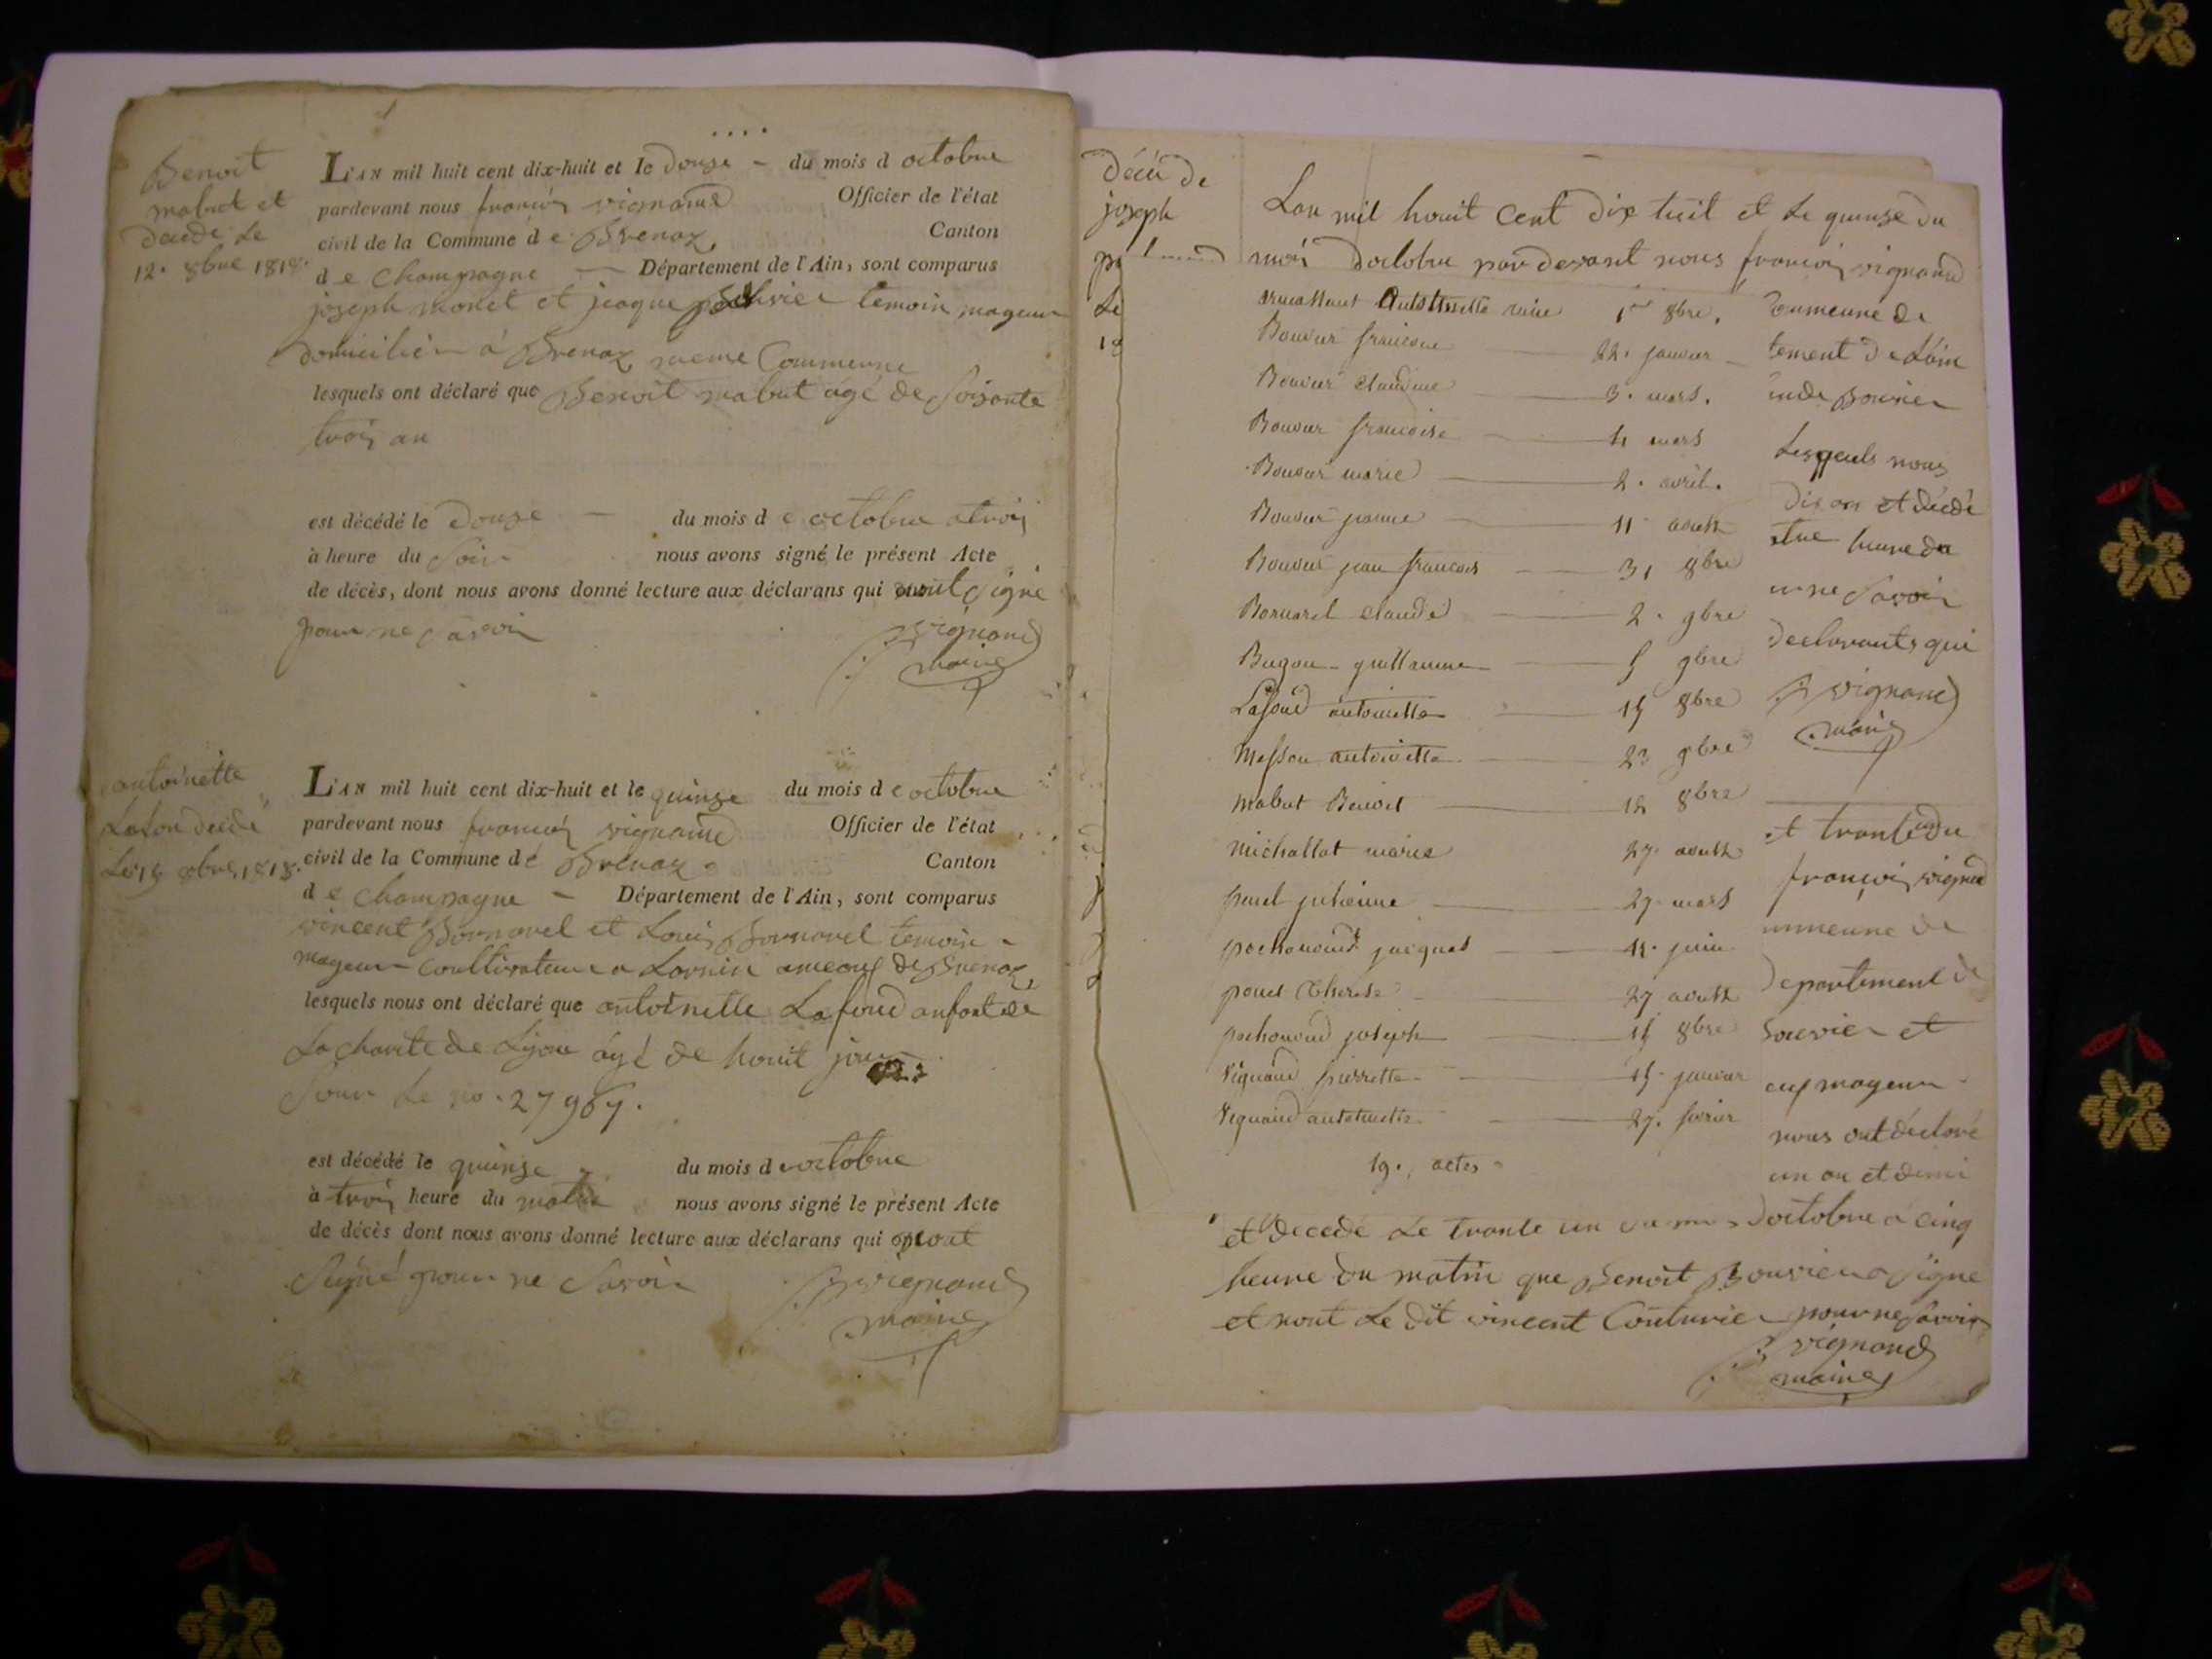 Benoit
mabut et
décidé Le
12. 8bre 1818.
L'AN mil huit cent dix-huit et le douze - du mois d octobre
pardevant nous françois vignand Officier de l'état
civil de la Commune de Brenaz, Canton
de Champagne - Département de l'Ain, sont comparus
joseph monet et jeaque temoin mageur
domicilier à Brenaz meme Commenne
lesquels ont déclaré que Benoit mabut agé de Soisante
trois an
est décédé le douze - du mois de octobre a trois
à heure du Soir nous avons signé le présent Acte
de décès, dont nous avons donné lecture aux déclarans qui nont Signé
pour ne savoir
vignand
maire
antoinette
Lafon décidé
Le 15 8bre 1818.
L'AN mil huit cent dix-huit et le quinze du mois de octobre
pardevant nous françois vignand Officier de l'état
civil de la Commune de Brenaz. Canton
de Champagne - Département de l'Ain, sont comparus
vincent Bornarel et Louis Bornarel temoin -
mageur Coultivateur a Lornin de Brenaz
lesquels nous ont déclaré que antoinette Lafond anfant de
La charite de Lyon âgé de houit jour
Sour Le no. 27967.
est décédé le quinze du mois d octobre
à trois heure du matin nous avons signé le présent Acte
de décès dont nous avons donné lecture aux déclarans qui nont
Signé pour ne Savoir
vignand
maire
décé de
joseph
Le
18
Lan mil houit Cent dix huit et Le quinse du
mois doctobre par devant nous françois vignand
antoinette 1er 8bre.
Bouvier francoise 22. janvier
Bouvier claudine 3. mars.
Bouvier francoise 4 mars
Bouvier marie 2. avril.
Bouvier jeanne 11 aoust
Bouvier jean francois 31 8bre
Bornarel claude 2. 9bre
Bugon guillaume 5 9bre
Lafond antoinette 15 8bre
Messon antoinette 23 9bre
Mabut Benoit 12 8bre
Michallat marie 27. aoust
29 mars
pochonoud jacques 11. juin
ponet Therese 27 aoust
pochonoud joseph 15 8bre
Vignand pierrette 15. janvier
Vignand antoinette 27. fevrier
19., actes
oummenne de
tement de Lain
Bouvier
Lesqeuls nous
dix an et décédé
heure du
ne Savoir
declarants qui
vignand
maire
et trante un du
françois vignand
mmenne de
Departement de
Bouvier et
mageur
nous ont déclaré
un an et demi
et décédé Le trante un du mois doctobre a cinq
heure du matin que Benoit Bouvier a Signe
et nont Le dit vincent Couturier pour ne Savoir
vignand
maire